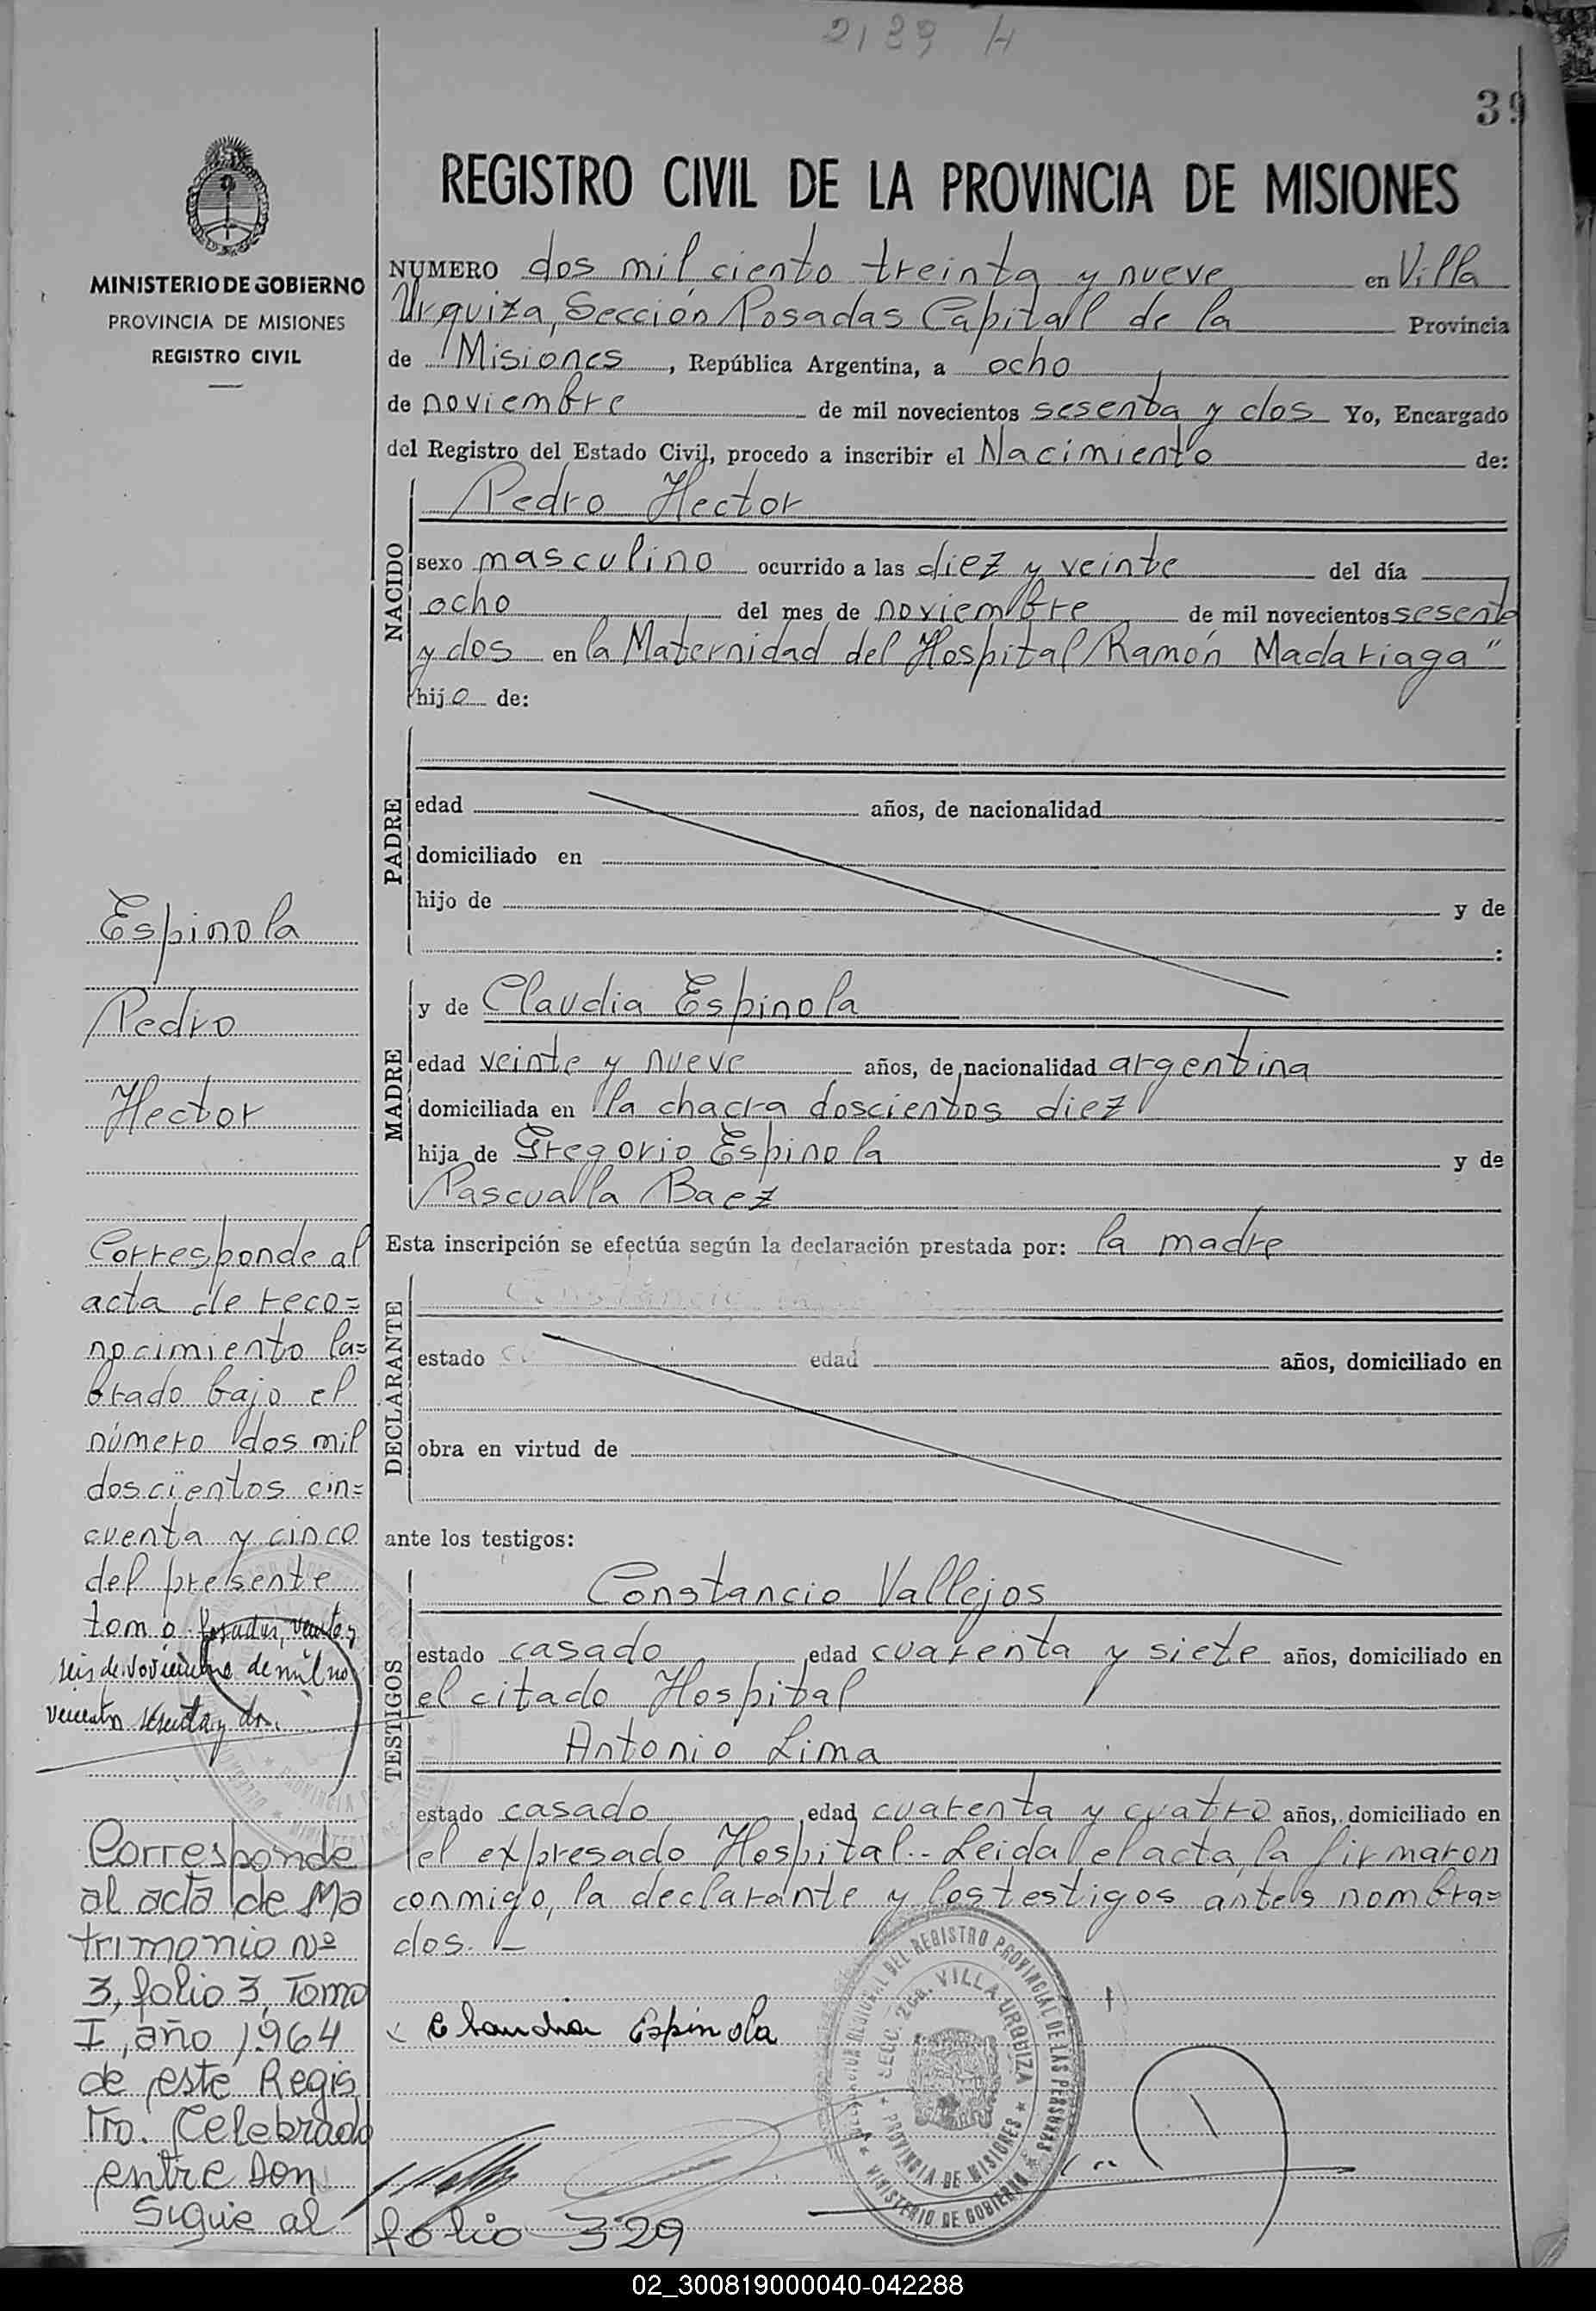 2139 H
39
MINISTERIO DE GOBIERNO
PROVINCIA DE MISIONES
REGISTRO CIVIL
REGISTRO CIVIL DE LA PROVINCIA DE MISIONES
NUMERO dos mil ciento treinta y nueve en Villa
Urquiza, Sección Posadas Capital de la Provincia
de Misiones, República Argentina, a ocho
de noviembre de mil novecientos sesenta y dos Yo, Encargado
del Registro del Estado Civil, procedo a inscribir el Nacimiento de:
NACIDO
Pedro Hector
sexo masculino ocurrido a las diez y veinte del día
ocho del mes de noviembre de mil novecientos sesenta
y dos en la Maternidad del Hospital Ramón Madariaga"
hijo de:
PADRE
edad años, de nacionalidad
domiciliado en
hijo de y de
:
MADRE
y de Claudia Espinola
edad veinte y nueve años, de nacionalidad argentina
domiciliada en la chacra doscientos diez
hija de Gregorio Espinola y de
Pascualla Baez
Esta inscripción se efectúa según la declaración prestada por: la madre
DECLARANTE
Constancio
estado edad años, domiciliado en
obra en virtud de
ante los testigos:
TESTIGOS
Constancio Vallejos
estado casado edad cuarenta y siete años, domiciliado en
el citado Hospital
Antonio Lima
estado casado edad cuarenta y cuatro años, domiciliado en
el expresado Hospital.- Leida el acta, la firmaron
conmigo, la declarante y los testigos antes nombra=
dos. -
x Claudia Espinola
REGISTRO PROVINCIAL DE LAS PERSONAS
SECC. 2da. VILLA URQUIZA
* PROVINCIA DE MISIONES *
* MINISTERIO DE GOBIERNO *
Espinola
Pedro
Hector
Corresponde al
acta de reco=
nocimiento la=
brado bajo el
número dos mil
doscientos cin=
cuenta y cinco
del presente
tomo. Posadas, veinte y
seis de Noviembre de mil no
vecientos sesenta y dos.
Corresponde
al acta de Ma
trimonio Nº
3, folio 3, Tomo
I, año 1964
de este Regis
tro. Celebrado
entre Don
Sigue al folio 329
02_300819000040-042288